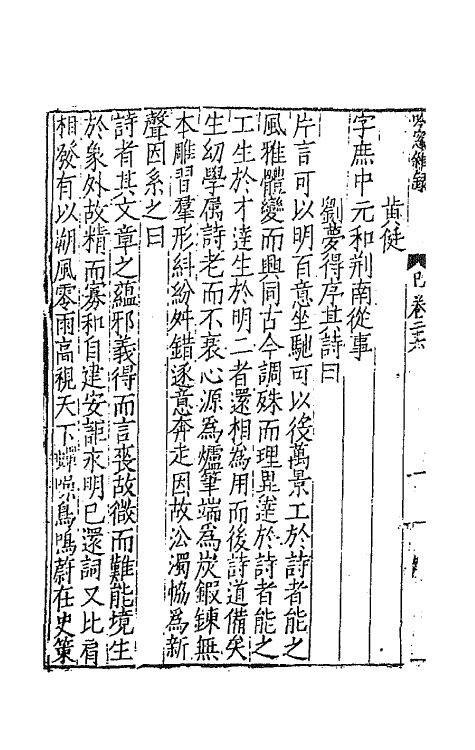 吟窻雜録 巳卷三六
黄侹
字庶中元和荆南從事
劉夢得序其詩曰
片言可以明百意坐馳可以役萬景工於詩者能之
風雅體變而興同古今調殊而理異逹於詩者能之
工生於才逹生於明二者還相為用而後詩道備矣
生幼學属詩老而不衰心源為爐筆端為炭鍜鍊無
本雕習羣形糾紛舛錯逐意奔走因故㳂濁恊為新
聲因系之曰
詩者其文章之藴邪義得而言喪故微而難能境生
於象外故精而寡和自建安詎永明已還詞又比肩
相發有以朔風零雨高視天下蟬噪鳥鳴蔚在史策